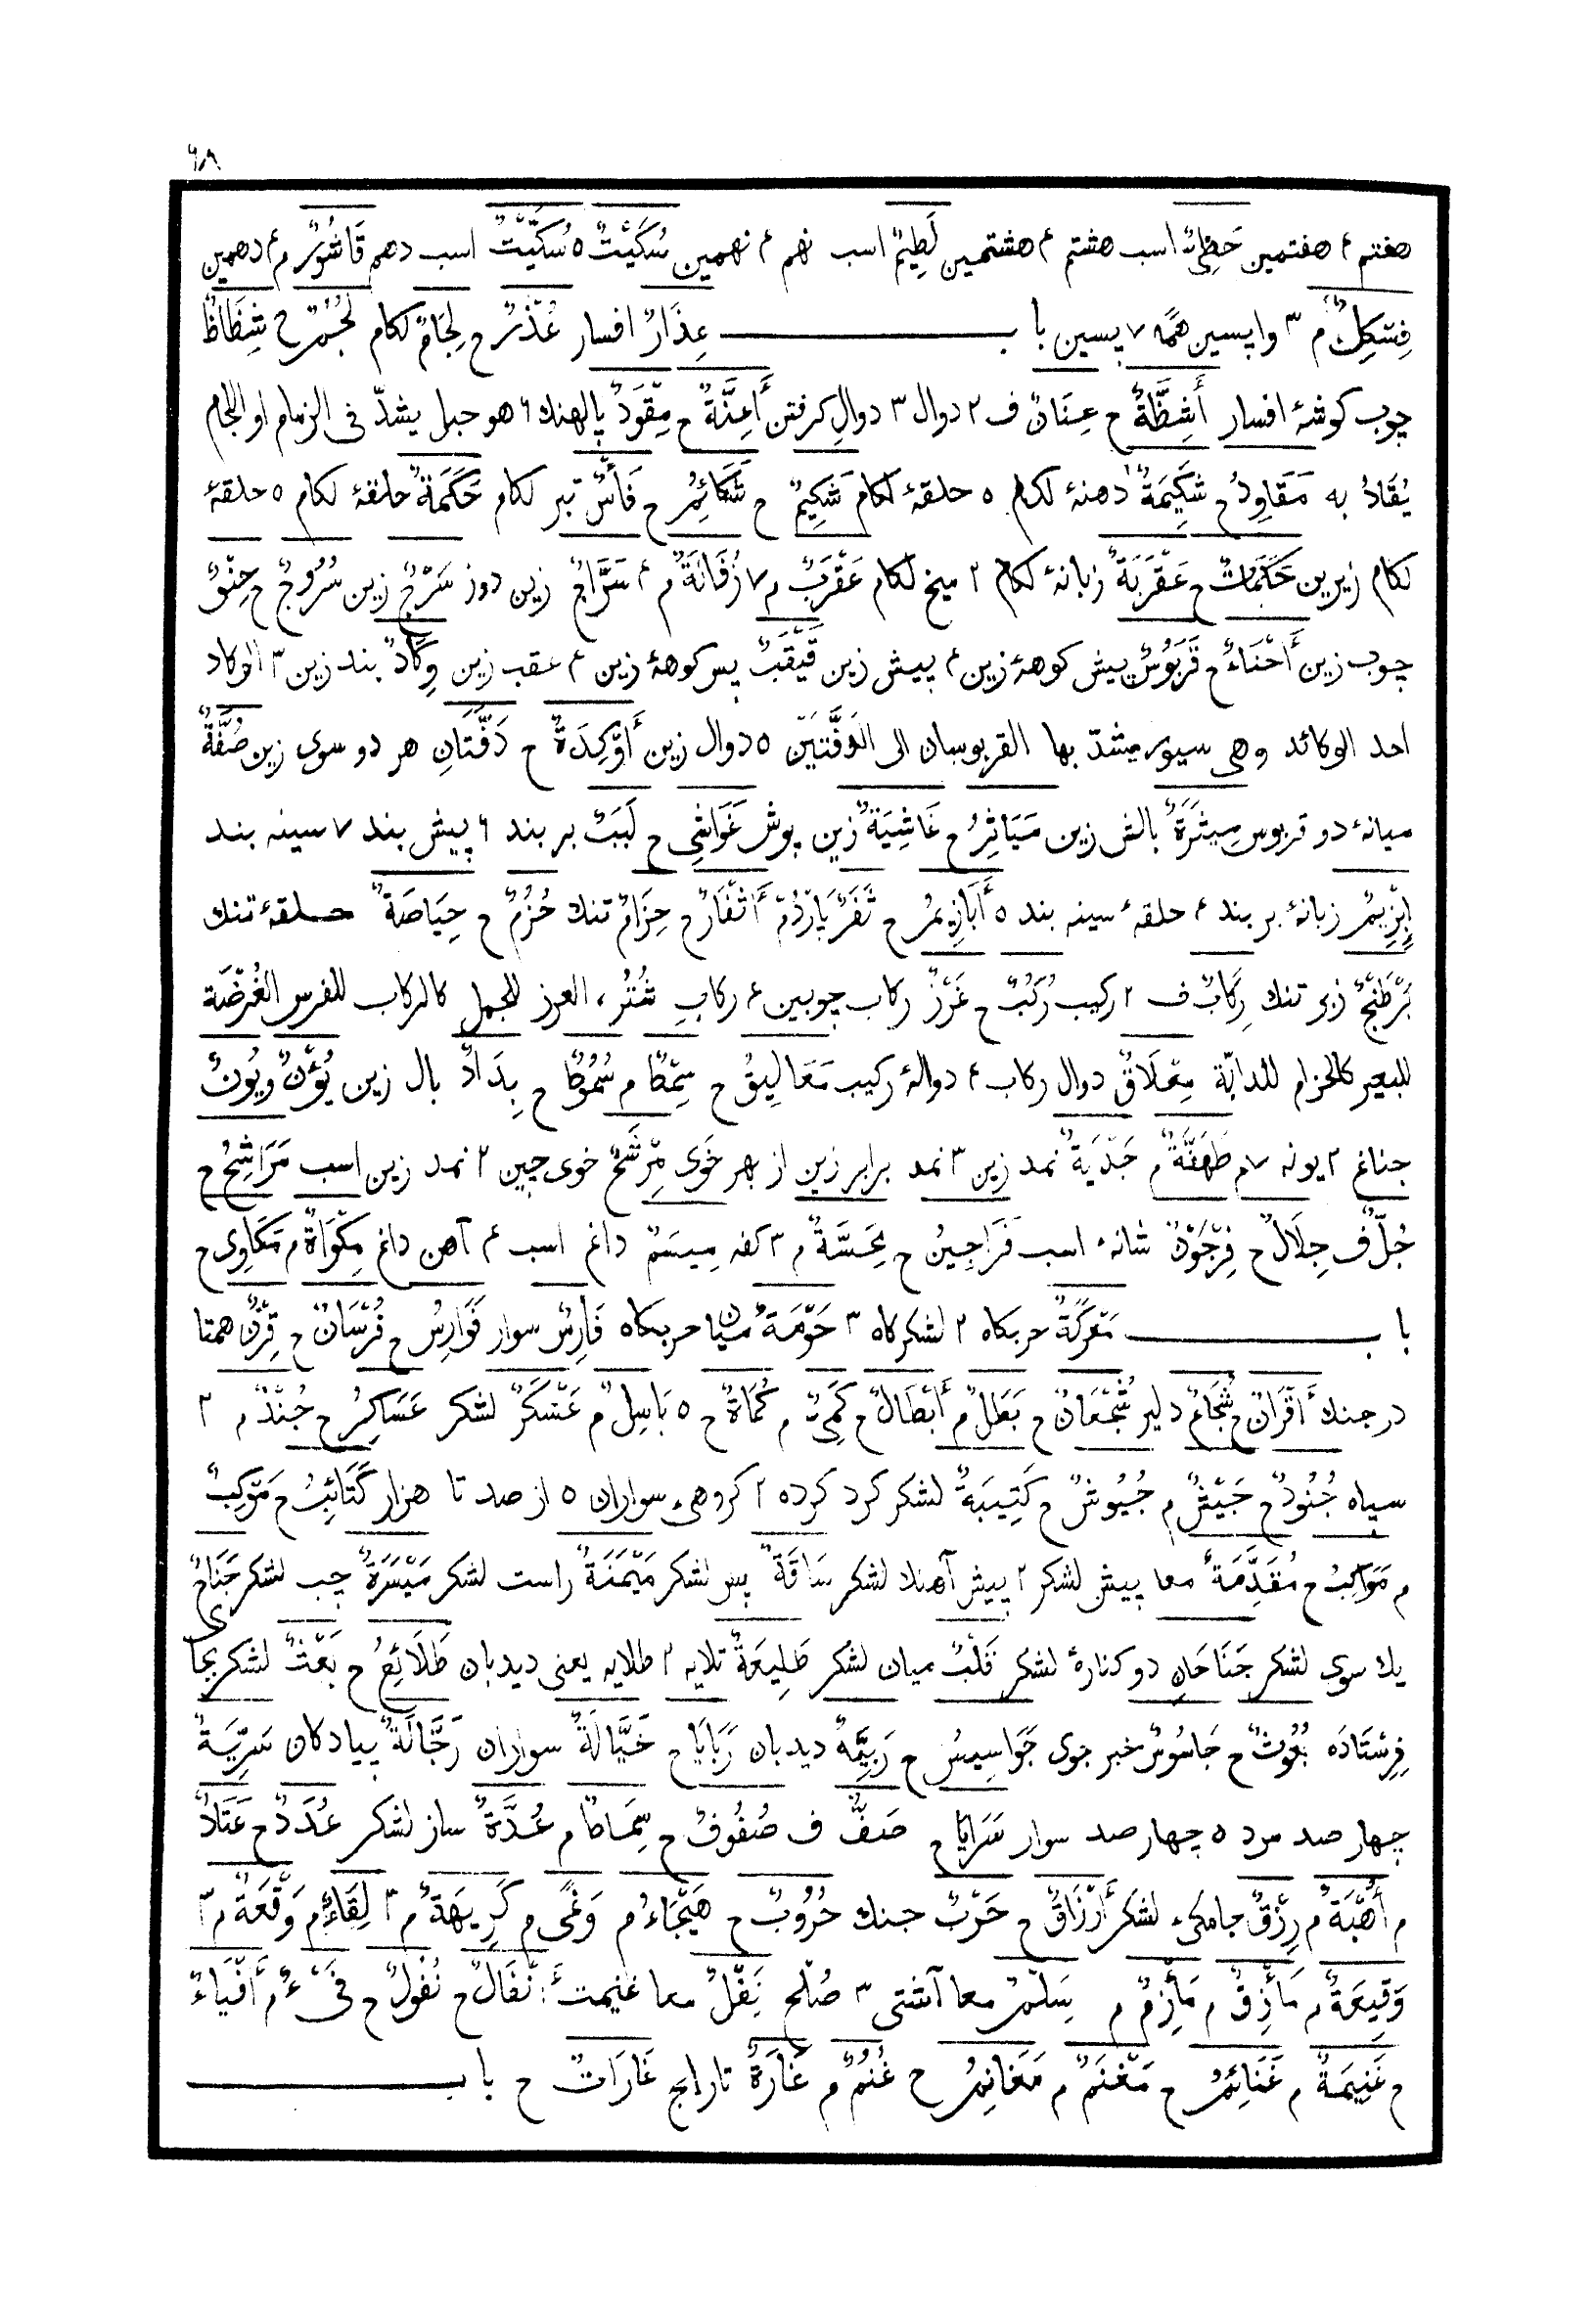 ۶۸
هفتم ۴ هفتمین حَظِیٌّ اسب هشتم ۴ هشتمین لَطِیمٌ اسب نهم ۴ نهمین سُکَیْتٌ ۵ سُکَّیْتٌ اسب دهم قَاشُورٌ م ۴ دهمین
فِسْکِلٌ م ۳ واپسین همه ۷ پسین با ب عِذَارٌ افسار عُذُرٌ ح لِجَامٌ لکام لُجُمٌ ح شِظَاظٌ
چوب کوشهٔ افسار أَشِظَّةٌ ح عِنَانٌ ف ۲ دوال ۳ دوالِ کرفتن أَعِنَّةٌ ح مِقْوَدٌ پالهنك ۶ هو حبل یشدّ فی الزمام او اللجام
یُقَادُ به مَقَاوِدُ ح شَکِیمَةٌ دهنهٔ لکام ۵ حلقهٔ لکام شَکِیمٌ ح شَکَائِمُ ح فَأْسٌ تبر لکام حَکَمَةٌ حلقهٔ لکام ۵ حلقهٔ
لکام زیرین حَکَمَاتٌ ح عَقْرَبَةٌ زبانهٔ لکام ۲ میخ لکام عَقْرَبٌ م ۷ زُفَانَةٌ م ۴ سَرَّاجٌ زین دوز سَرْجٌ زین سُرُوجٌ ح حِنْوٌ
چوب زین أَحْنَاءٌ ح قَرَبُوسٌ پیش کوههٔ زین ۴ پیش زین قَیْقَبٌ پس کوههٔ زین ۴ عقب زین وِکَادٌ بند زین ۳ الوکاد
احد الوکائد وهی سیور یشدّ بها القربوسان الی الدَفَّتَیْن ۵ دوال زین أَوْکِدَةٌ ح دَفَّتَانِ هر دو سوی زین صُفَّةٌ
میانهٔ دو قربوس مِیثَرَةٌ بالش زین مَیَاثِرُ ح غَاشِیَةٌ زین پوش غَوَاشِی ح لَبَبٌ بر بند ۶ پیش بند ۷ سینه بند
إِبْزِیمٌ زبانهٔ بر بند ۴ حلقهٔ سینه بند ۵ أَبَازِیمُ ح ثَفَرٌ پَارْدُمْ أَثْفَارٌ ح حِزَامٌ تنك حُزُمٌ ح حِیَاصَةٌ حلقهٔ تنك
بَرْطَنْجٌ زبر تنك رِکَابٌ ف ۲ رکیب رُکُبٌ ح غَرْزٌ رکاب چوبین ۴ رکابِ شُتُر، الغرز للجمل کالرکاب للفرس الغُرْضَة
للبعیر کالحزام للدابّة مِعْلَاقٌ دوال رکاب ۴ دوالهٔ رکیب مَعَالِیقُ ح سِمْطٌ م سُمُوطٌ ح بِدَادٌ بال زین یُؤْنٌ وَیُونٌ
جناغ ۲ یونه ۷ م طَهَفَةٌ م جَدْیَةٌ نمد زین ۳ نمد برابر زین از بهر خَوَی مِرْشَحٌ خوی چین ۲ نمد زین اسب مَرَاشِحُ ح
جُلٌّ ف جِلَالٌ ح فِرْجَوْنٌ شانهٔ اسب فَرَاجِینُ ح مِحَسَّةٌ م ۳ کفه مِیسَمٌ داغ اسب ۴ آهن داغ مِکْوَاةٌ م مَکَاوِی ح
با ب مَعْرَکَةٌ حربکاه ۲ لشکرکاه ۳ حَوْمَةٌ میان حربکاه فَارِسٌ سوار فَوَارِسُ ح فُرْسَانٌ ح قِرْنٌ همتا
در جنك أَقْرَانٌ ح شُجَاعٌ دلیر شُجْعَانٌ ح بَطَلٌ م أَبْطَالٌ ح کَمِیٌّ م کُمَاةٌ ح ۵ بَاسِلٌ م عَسْکَرٌ لشکر عَسَاکِرُ ح جُنْدٌ م ۲
سپاه جُنُودٌ ح جَیْشٌ م جُیُوشٌ ح کَتِیبَةٌ لشکر کرد کرده ۲ کروهی سواران ۵ از صد تا هزار کَتَائِبُ ح مَوْکِبٌ
م مَوَاکِبُ ح مُقَدِّمَةٌ معا پیش لشکر ۲ پیش آهنك لشکر سَاقَةٌ پس لشکر مَیْمَنَةٌ راست لشکر مَیْسَرَةٌ چپ لشکر جَنَاحٌ
یك سوی لشکر جَنَاحَانِ دو کنارهٔ لشکر قَلْبٌ میان لشکر طَلِیعَةٌ تلایه ۲ طلایه یعنی دیدبان طَلَائِعُ ح بَعْثٌ لشکر بجای
فِرِسْتَادَه بُعُوثٌ ح جَاسُوسٌ خبر جوی جَوَاسِیسُ ح رَبِیَّةٌ دیدبان رَبَایَا ح خَیَّالَةٌ سواران رَجَّالَةٌ پیادکان سَرِیَّةٌ
چهار صد مرد ۵ چهار صد سوار سَرَایَا ح صَفٌّ ف صُفُوفٌ ح سِمَاطٌ م عُدَّةٌ ساز لشکر عُدَدٌ ح عَتَادٌ
م أُهْبَةٌ م رِزْقٌ جامکیء لشکر أَرْزَاقٌ ح حَرْبٌ جنك حُرُوبٌ ح هَیْجَاءُ م وَغًی م کَرِیهَةٌ م ۳ لِقَاءٌ م وَقْعَةٌ م ۳
وَقِیعَةٌ م مَأْزِقٌ م مَأْزِمٌ م سَلْمٌ معا آشتی ۳ صُلْح نَفْلٌ معا غنیمت أَنْفَالٌ ح نُفُولٌ ح فَیْءٌ م أَفْیَاءٌ
ح غَنِیمَةٌ م غَنَائِمُ ح مَغْنَمٌ م مَغَانِمُ ح غُنْمٌ م غَارَةٌ تاراج غَارَاتٌ ح با ب